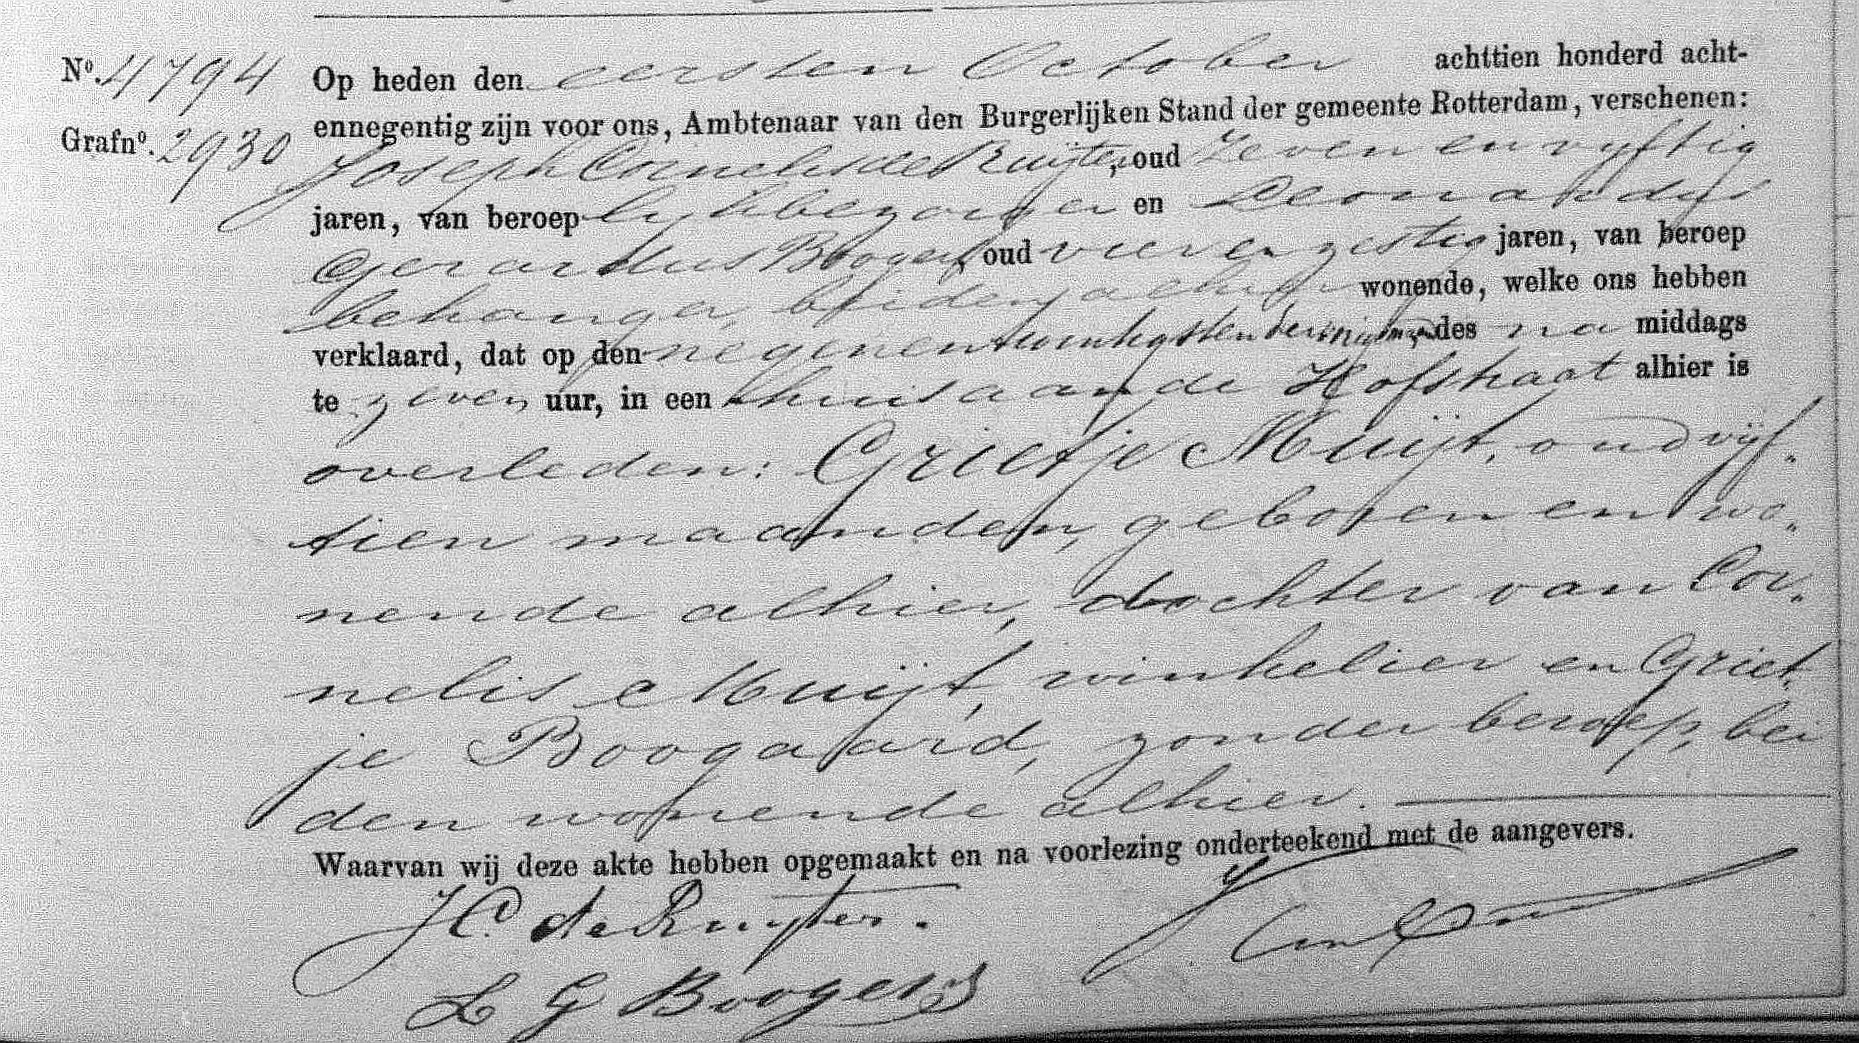 Nº. 4794 Op heden den eersten October achttien honderd acht-
ennegentig zijn voor ons, Ambtenaar van den Burgerlijken Stand der gemeente Rotterdam, verschenen:
Grafnº. 2930 Joseph Cornelis de Ruijter, oud zeven en vyftig
jaren, van beroep lijkbezorger en Leonardus
Gerardus Boogers oud vier en zestig jaren, van beroep
behanger, beiden alhier wonende, welke ons hebben
verklaard, dat op den negenentwintigsten dezer maand des na middags
te zeven uur, in een huis aan de Hofstraat alhier is
overleden: Grietje Muijt, oud vijf-
tien maanden, geboren en wo-
nende alhier, dochter van Cor-
nelis Muijt, winkelier en Griet-
je Boogaard, zonder beroep, bei
den wonende alhier.
Waarvan wij deze akte hebben opgemaakt en na voorlezing onderteekend met de aangevers.
J C. de Ruyter.
L G Boogers